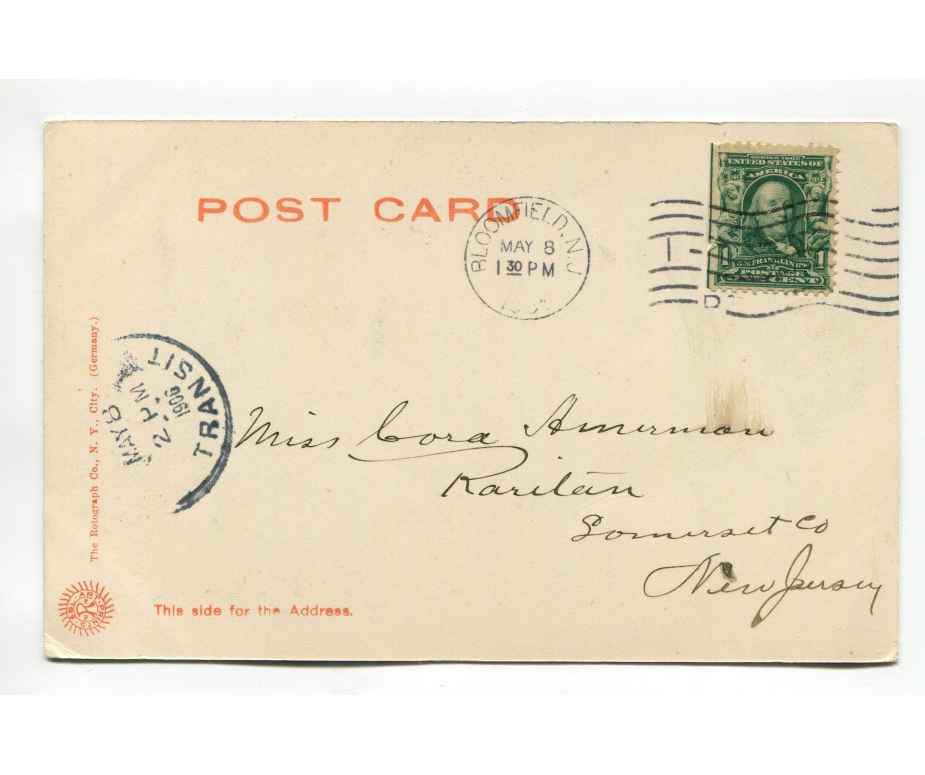 POST CARD
BLOOMFIELD, N.J.
MAY 8
1 30 PM
SERIES 1902
UNITED STATES OF
AMERICA
1 FRANKLIN 1
POSTAGE
ONE CENT
The Rotograph Co., N. Y., City. (Germany.)
TRANSIT
MAY 8
2 PM
1906
Miss Cora Amerman
Raritan
Somerset Co
New Jersey
This side for the Address.